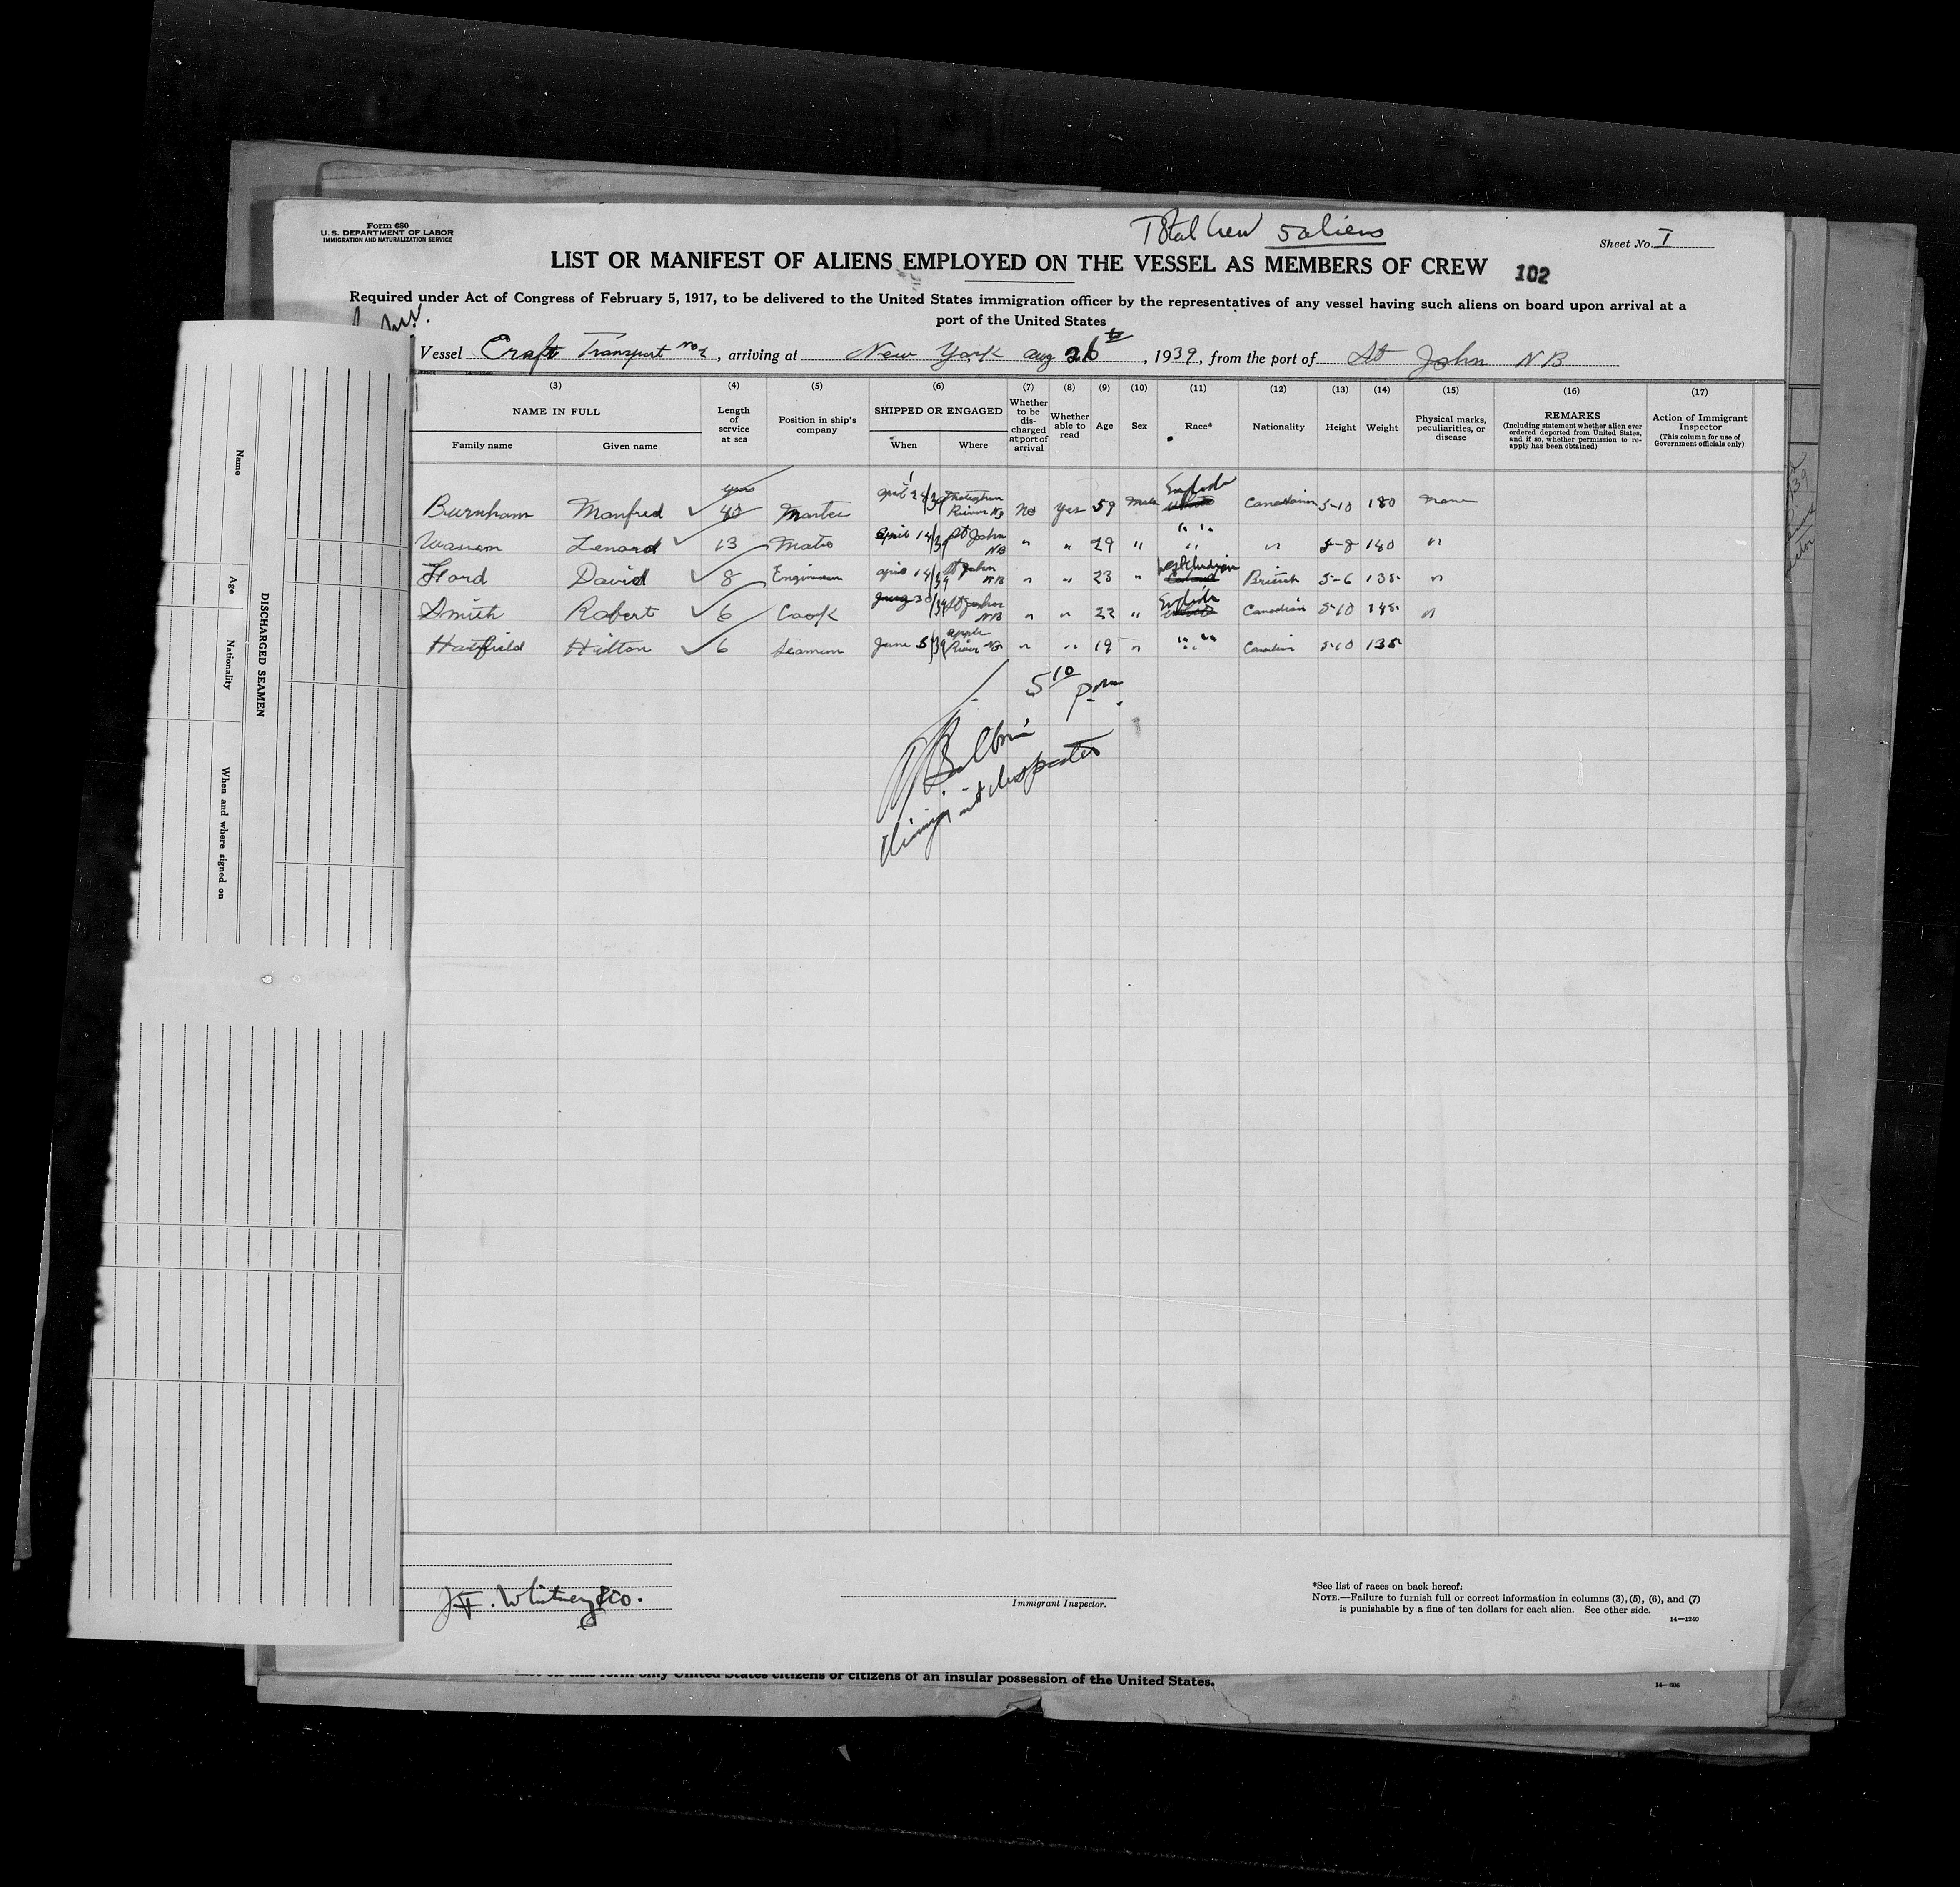 Total Crew 5 aliens
Form 680
U. S. DEPARTMENT OF LABOR
IMMIGRATION AND NATURALIZATION SERVICE
Sheet No. I
LIST OR MANIFEST OF ALIENS EMPLOYED ON THE VESSEL AS MEMBERS OF CREW
102
Required under Act of Congress of February 5, 1917, to be delivered to the United States immigration officer by the representatives of any vessel having such aliens on board upon arrival at a
port of the United States
Vessel Craft Transport No 2, arriving at New York Aug 26, 1939, from the port of St John NB
(3) (4) (5) (6) (7) (8) (9) (10) (11) (12) (13) (14) (15) (16) (17)
NAME IN FULL
Family name Given name
Length of service at sea
Position in ship's company
SHIPPED OR ENGAGED
When Where
Whether to be discharged at port of arrival
Whether able to read
Age
Sex
Race*
Nationality
Height
Weight
Physical marks, peculiarities, or disease
REMARKS
(Including statement whether alien ever ordered deported from United States, and if so, whether permission to reapply has been obtained)
Action of Immigrant Inspector
(This column for use of Government officials only)
Burnham Manfred years 40 Master April 39 River NS No Yes 59 Male Canadian 5-10 180 None
Lenard 13 Mate April 14/39 St John NB " " 29 " " " 5-8 140 "
Ford David 8 Engineer April 14/39 St John NB " " 23 " West Indian British 5-6 135 "
Smith Robert 6 Cook 39 St John NB " " 22 " Canadian 5-10 145 "
Hatfield Hilton 6 Seaman June 5/39 Apple River NS " " 19 " " " Canadian 5-10 135
5 10 pm
Immigrant Inspector
DISCHARGED SEAMEN
Name
Age
Nationality
When and where signed on
J.F. Whitney & Co.
Immigrant Inspector.
*See list of races on back hereof.
NOTE.—Failure to furnish full or correct information in columns (3), (5), (6), and (7)
is punishable by a fine of ten dollars for each alien. See other side.
14—1240
on this form only United States citizens or citizens of an insular possession of the United States.
14—606